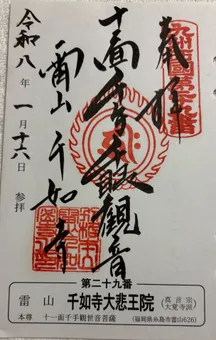 奉拝
九州西国第二十九番
十一面千手千眼観音
雷山 千如寺
令和八年一月十六日 参拝
第二十九番
雷山 千如寺大悲王院 (真言宗 大覚寺派)
本尊 十一面千手観世音菩薩 (福岡県糸島市雷山626)